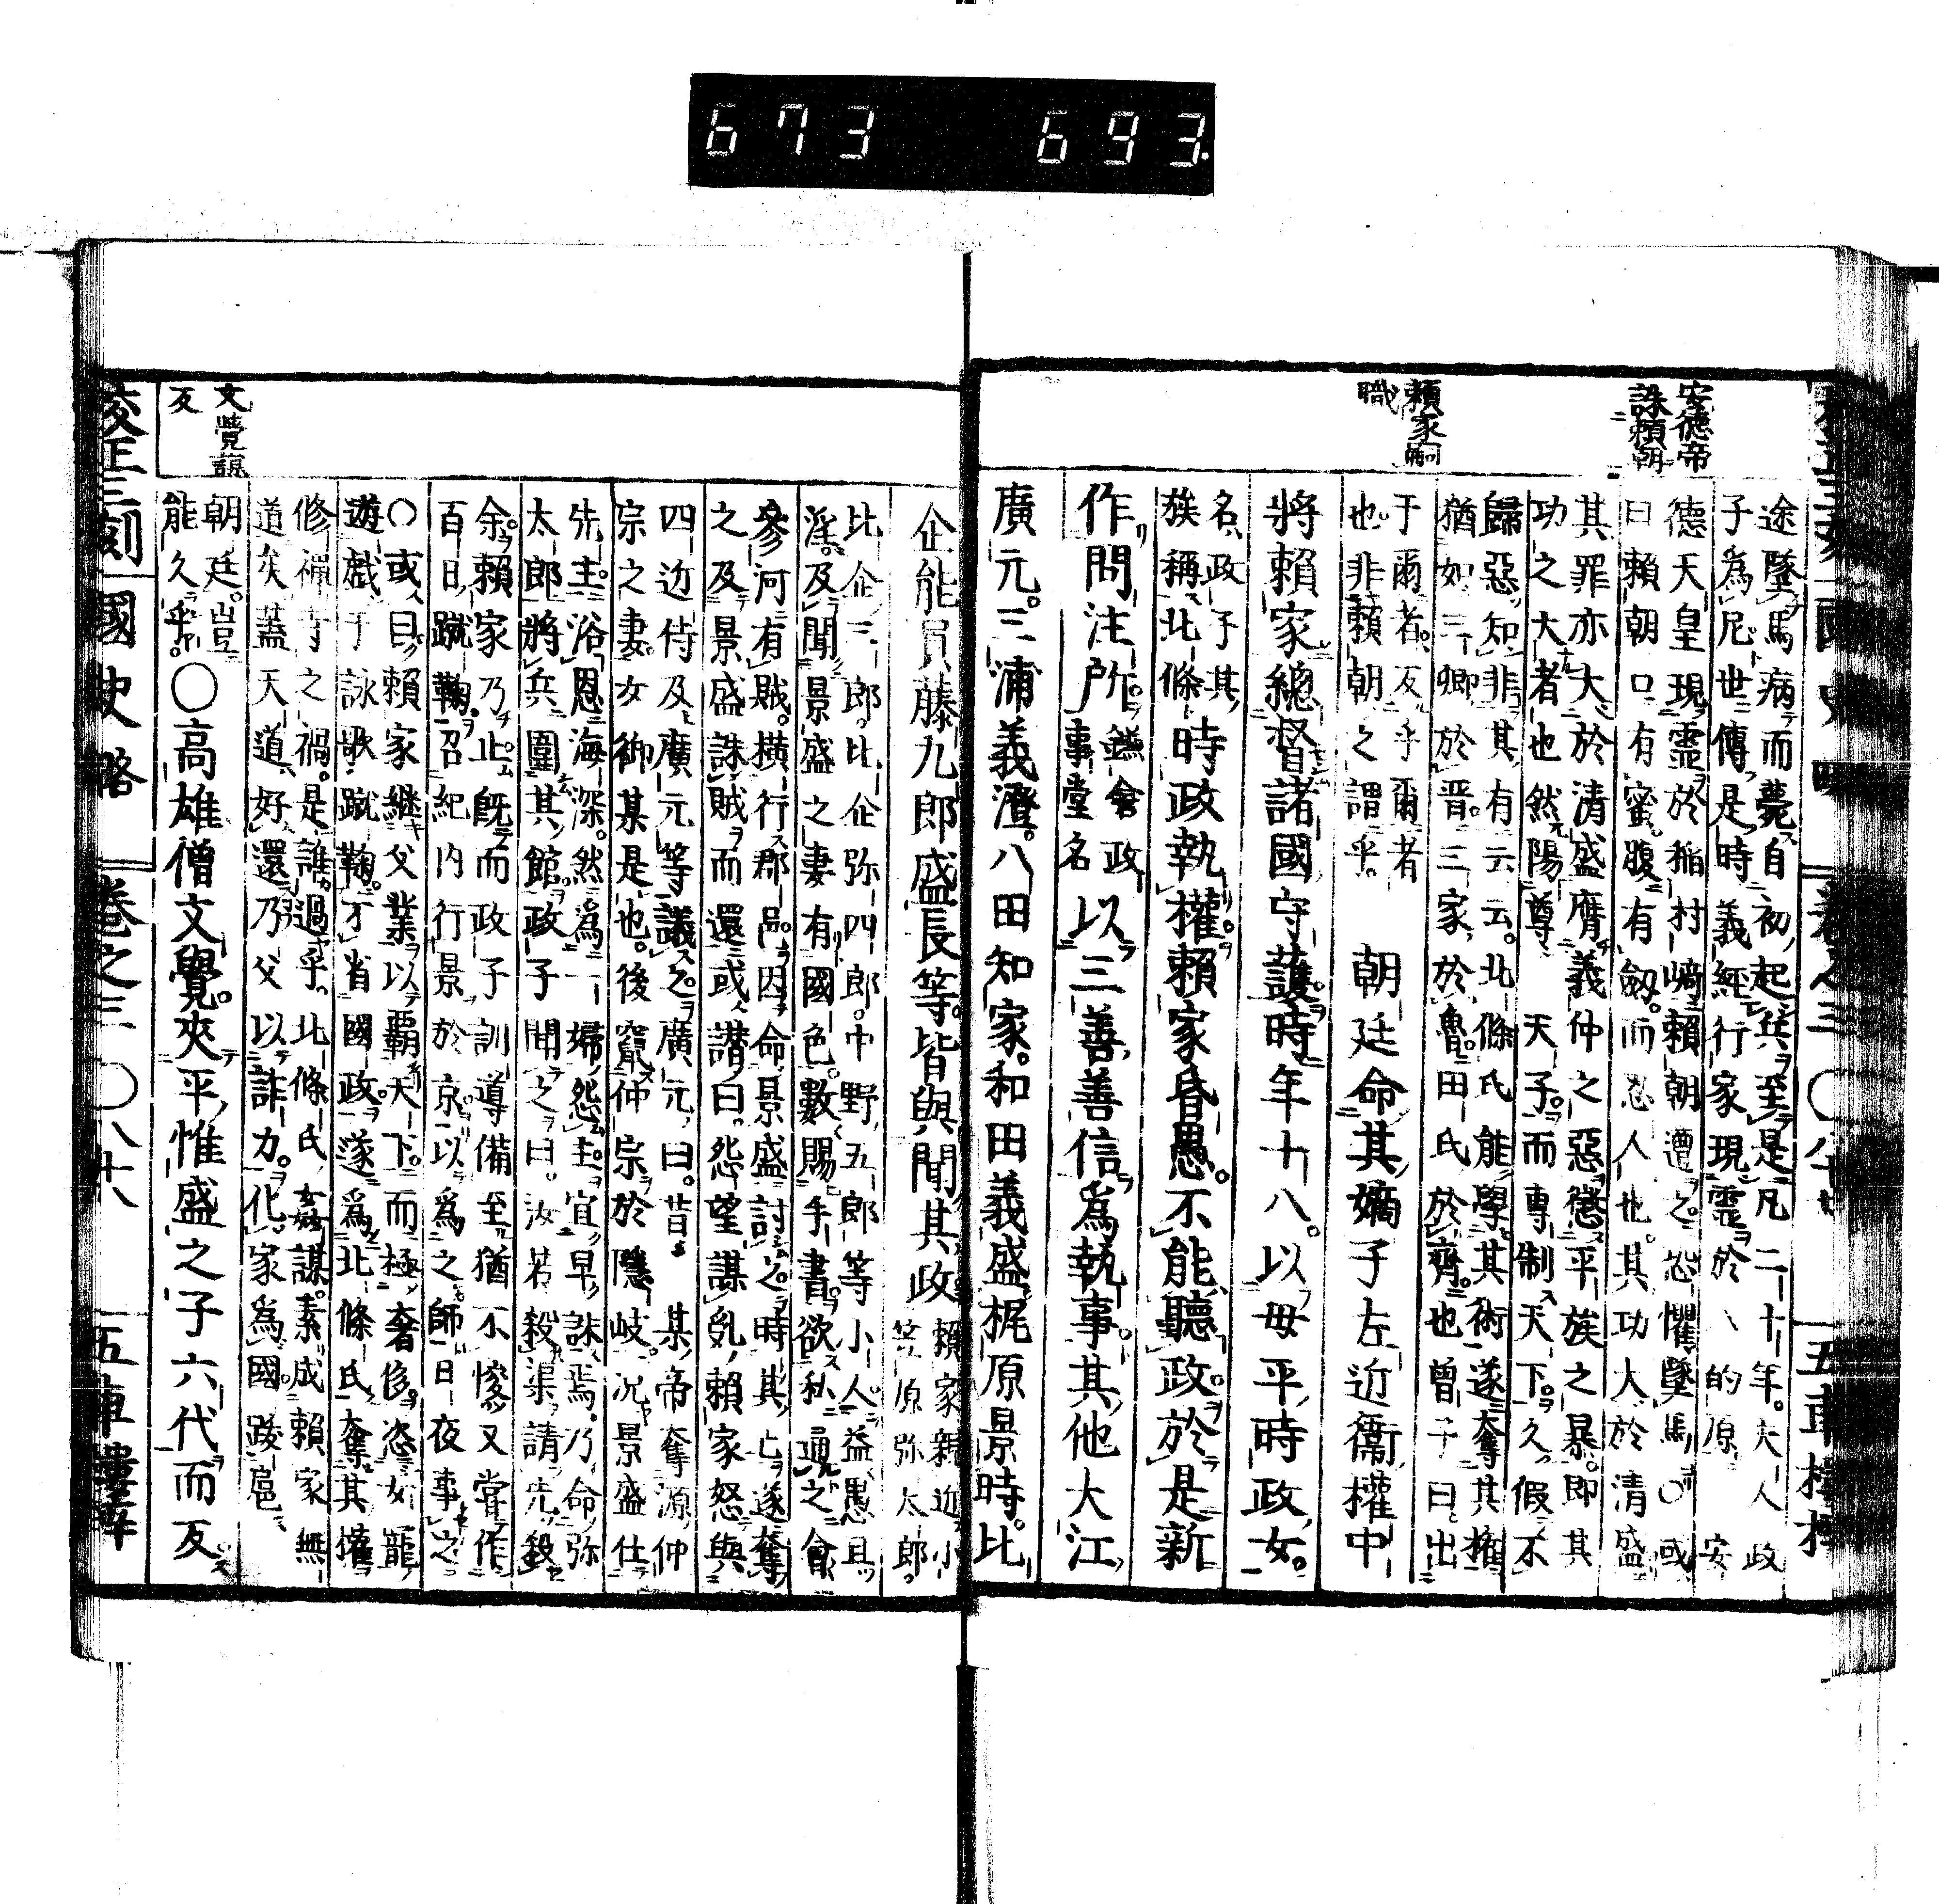 673 693.
安德帝
誅賴朝
賴家嗣
職
途墜馬病而薨自初起兵至是凡二十年夫人政
子為尼世傳是時義經行家現靈於八的原安
德天皇現靈於稲村﨑賴朝遭之恐懼墜馬〇或
曰賴朝口有蜜腹有劔而忍人也其功大於清盛
其罪亦大於清盛膺義仲之惡懲平族之暴即其
功之大者也然陽尊天子而專制天下久假不
歸惡知非其有云云北條氏能學其術遂奪其權
猶如三卿於晋三家於魯田氏於齊也曾子曰出
于爾者反乎爾者
也非賴朝之謂乎 朝廷命其嫡子左近衞權中
將賴家總督諸國守護時年十八以母平時政女
名政子其
族稱北條時政執權賴家昏愚不能聽政於是新
作問注所鎌倉政
事堂名以三善善信為執事其他大江
廣元三浦義澄八田知家和田義盛梶原景時比
企能員藤九郎盛長等皆與聞其政賴家親近小
笠原弥太郎
比企三郎比企弥四郎中野五郎等小人益愚且
淫及聞景盛之妻有國色數賜手書欲私通之會
參河有賊橫行郡邑因命景盛討之時其亡遂奪
之及景盛誅賊而還或譛曰怨望謀乱賴家怒與
四辺侍及廣元等議之廣元曰昔某帝奪源仲
宗之妻女御某是也後竄仲宗於隱岐况景盛仕
先主浴恩海深然為一婦怨主宜早誅焉乃命弥
太郎將兵圍其館政子聞之曰汝若殺渠請先殺
余賴家乃止旣而政子訓導備至猶不悛又嘗作
百日蹴鞠召紀内行景於京以為之師日夜事之
〇或曰賴家継父業以覇天下而極奢侈恣女寵
遊戯于詠歌蹴鞠才省國政遂為北條氏奪其權
修禪寺之禍是誰過乎北條氏姦謀素成賴家無
道矣蓋天道好還乃父以詐力化家為國跋扈
朝廷豈
能久乎〇高雄僧文覺夾平惟盛之子六代而反
文覺謀
反
校正三刻 國史略 卷之三 〇八十八 五車樓梓